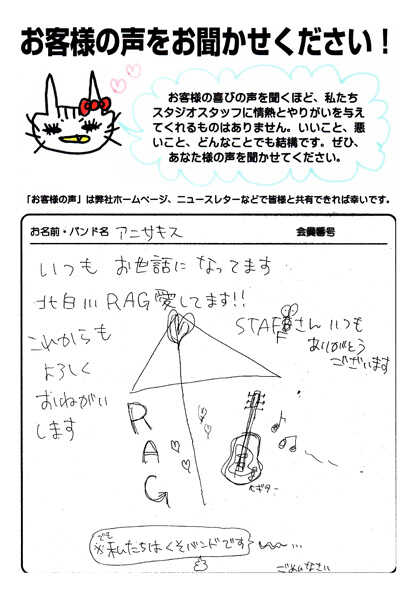 お客様の声をお聞かせください！
お客様の喜びの声を聞くほど、私たち
スタジオスタッフに情熱とやりがいを与え
てくれるものはありません。いいこと、悪
いこと、どんなことでも結構です。ぜひ、
あなた様の声を聞かせてください。
「お客様の声」は弊社ホームページ、ニュースレターなどで皆様と共有できれば幸いです。
お名前・バンド名 アニサキス 会員番号
いつも お世話に なってます
北白川 RAG愛してます!!
STAFFさん いつも
ありがとう
ございます
これからも
よろしく
おねがい
します
RAG
ギター
でも
※私たちはくそバンドです
ごめんなさい